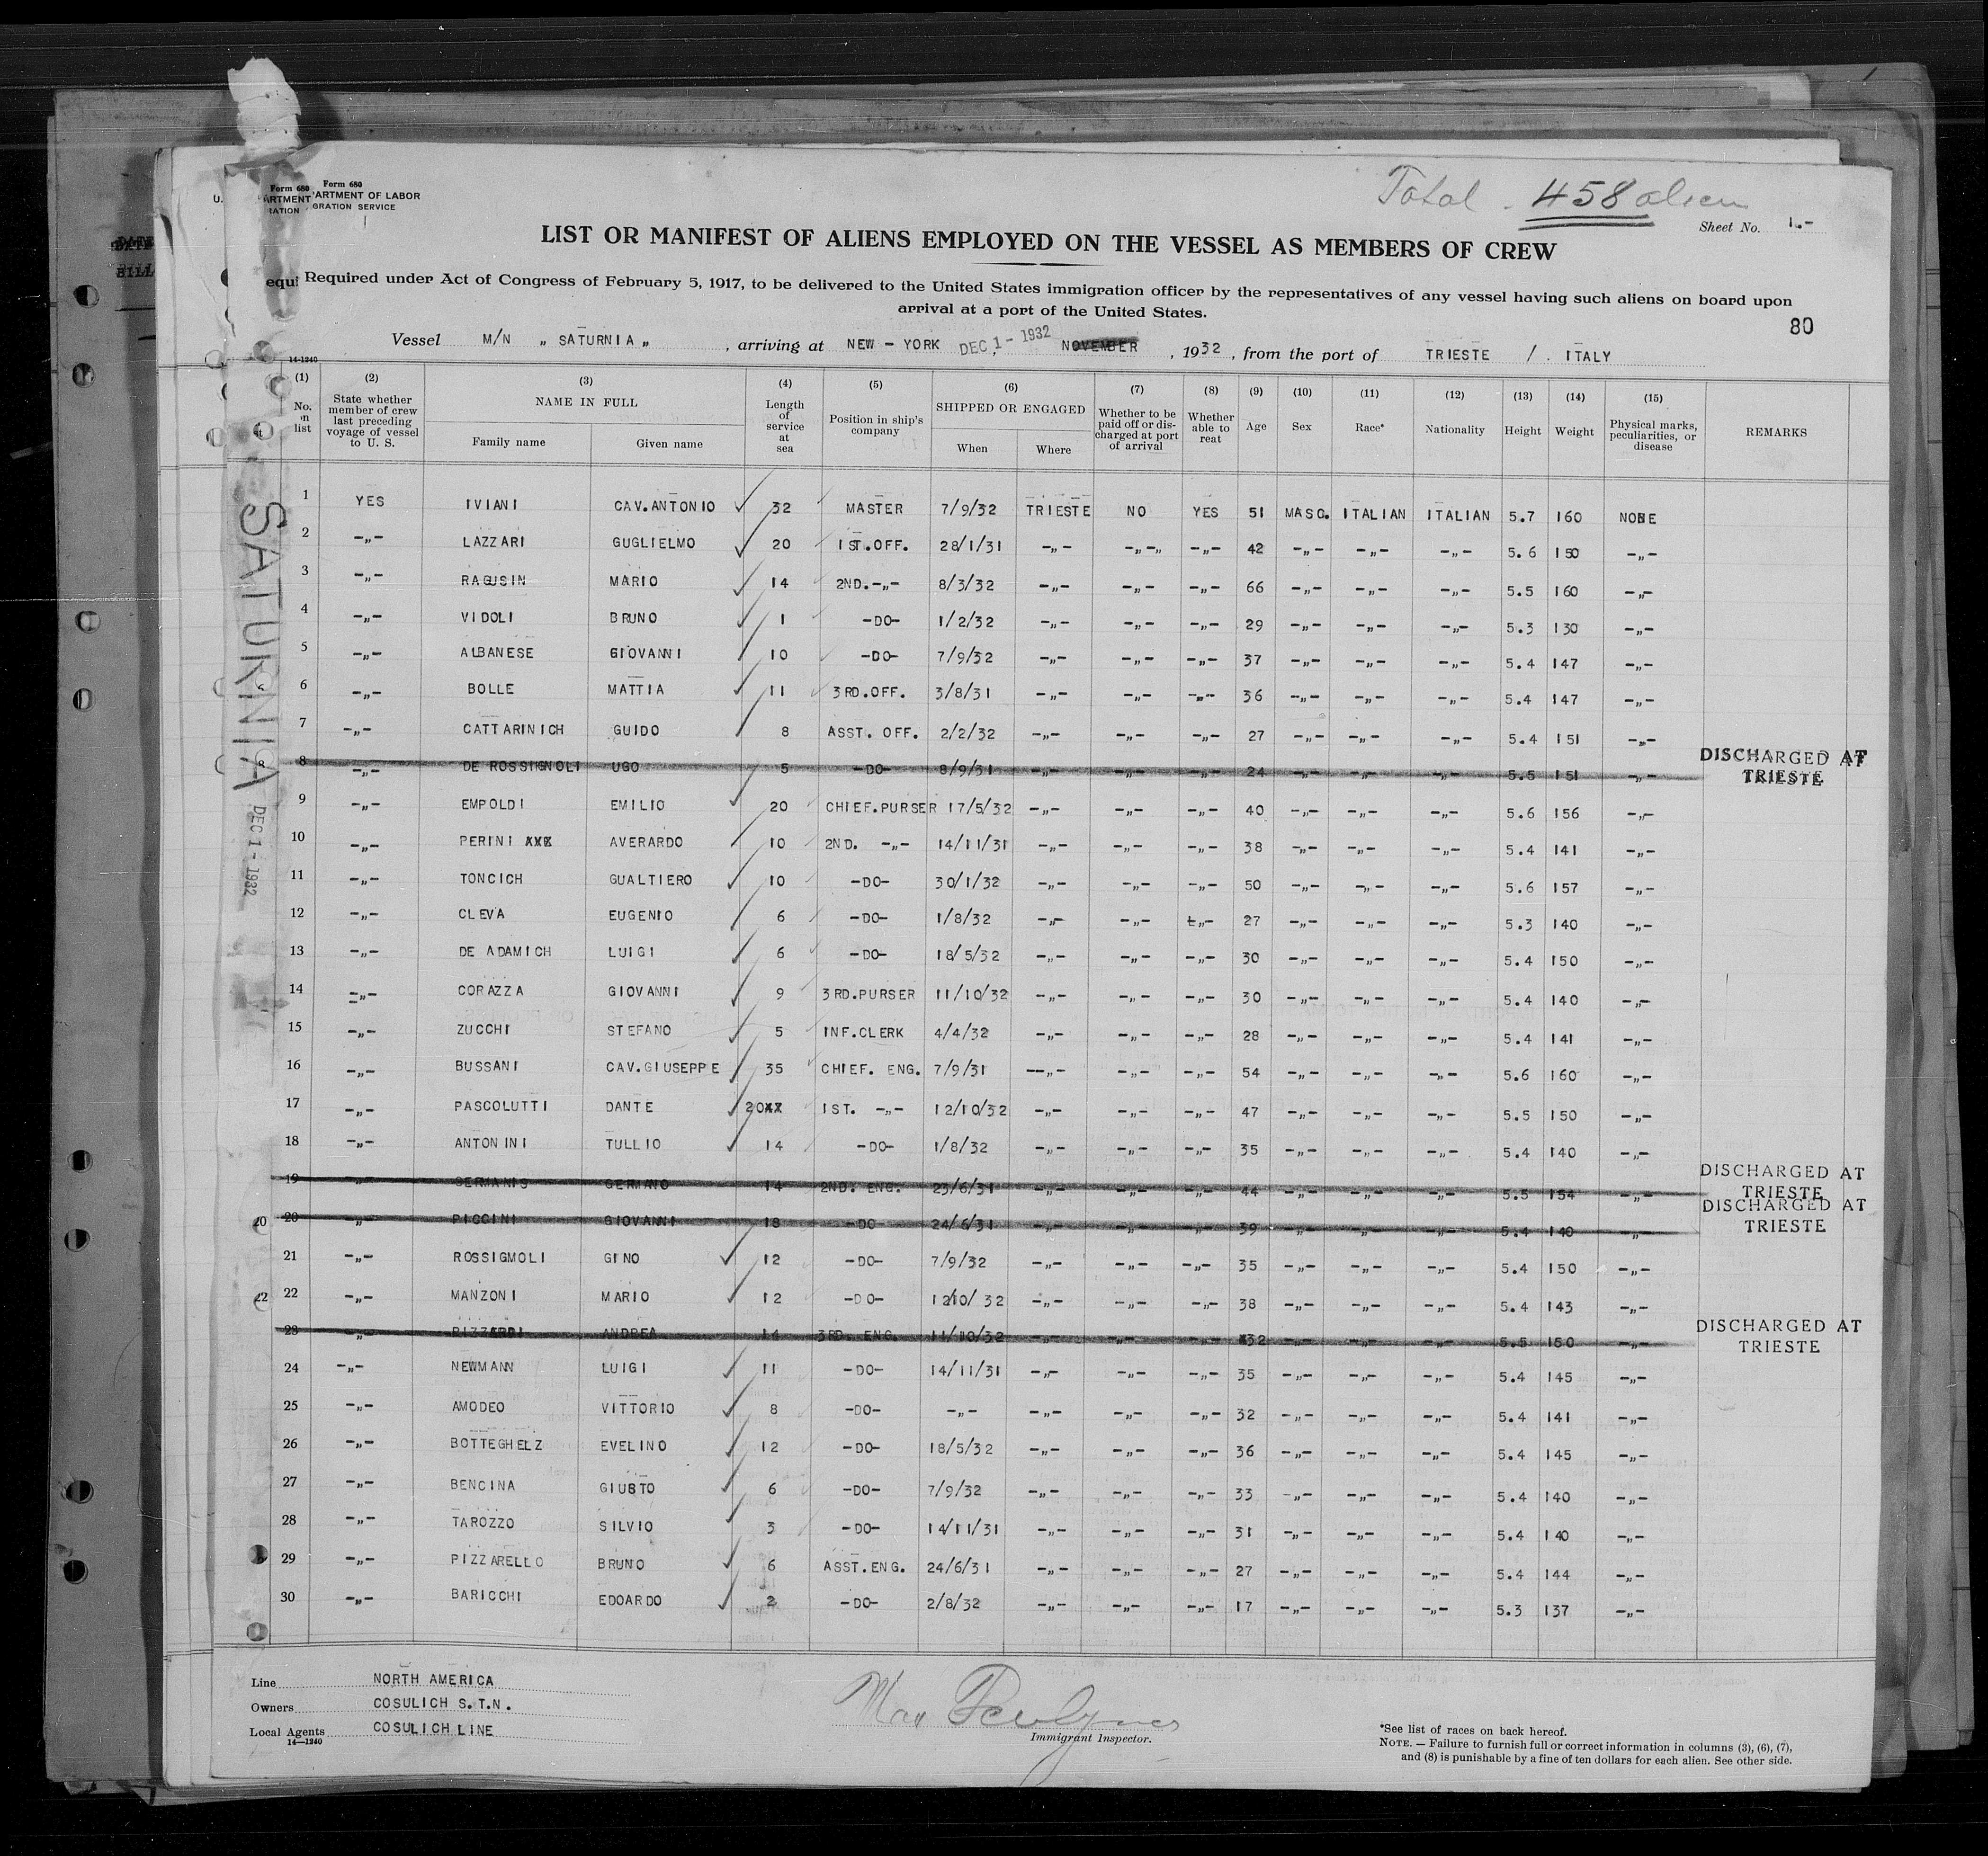 Form 680 Form 680
U. ARTMENT ARTMENT OF LABOR
RATION GRATION SERVICE
Total - 458 aliens
Sheet No. 1.-
LIST OR MANIFEST OF ALIENS EMPLOYED ON THE VESSEL AS MEMBERS OF CREW
equi Required under Act of Congress of February 5, 1917, to be delivered to the United States immigration officer by the representatives of any vessel having such aliens on board upon
arrival at a port of the United States.
80
Vessel M/N „ SATURNIA „ , arriving at NEW - YORK DEC 1 - 1932 NOVEMBER , 1932 , from the port of TRIESTE / . ITALY
14-1240
(1) No. on list
(2) State whether member of crew last preceding voyage of vessel to U. S.
(3) NAME IN FULL Family name Given name
(4) Length of service at sea
(5) Position in ship's company
(6) SHIPPED OR ENGAGED When Where
(7) Whether to be paid off or discharged at port of arrival
(8) Whether able to reat
(9) Age
(10) Sex
(11) Race*
(12) Nationality
(13) Height
(14) Weight
(15) Physical marks, peculiarities, or disease
REMARKS
1 YES IVIANI CAV.ANTONIO 32 MASTER 7/9/32 TRIESTE NO YES 51 MASC. ITALIAN ITALIAN 5.7 160 NONE
2 -„- LAZZARI GUGLIELMO 20 1ST.OFF. 28/1/31 -„- -„-„ -„- 42 -„- -„- -„- 5.6 150 -„-
3 -„- RAGUSIN MARIO 14 2ND.-„- 8/3/32 -„- -„- -„- 66 -„- -„- -„- 5.5 160 -„-
4 -„- VIDOLI BRUNO 1 -DO- 1/2/32 -„- -„- -„- 29 -„- -„- -„- 5.3 130 -„-
5 -„- ALBANESE GIOVANNI 10 -DO- 7/9/32 -„- -„- -„- 37 -„- -„- -„- 5.4 147 -„-
6 -„- BOLLE MATTIA 11 3RD.OFF. 3/8/31 -„- -„- -„- 36 -„- -„- -„- 5.4 147 -„-
7 -„- CATTARINICH GUIDO 8 ASST. OFF. 2/2/32 -„- -„- -„- 27 -„- -„- -„- 5.4 151 -„-
8 -„- DE ROSSIGNOLI UGO 5 -DO- 8/9/31 -„- -„- -„- 24 -„- -„- -„- 5.5 151 -„- DISCHARGED AT TRIESTE
9 -„- EMPOLDI EMILIO 20 CHIEF.PURSER 17/5/32 -„- -„- -„- 40 -„- -„- -„- 5.6 156 -„-
10 -„- PERINI XXX AVERARDO 10 2ND. -„- 14/11/31 -„- -„- -„- 38 -„- -„- -„- 5.4 141 -„-
11 -„- TONCICH GUALTIERO 10 -DO- 30/1/32 -„- -„- -„- 50 -„- -„- -„- 5.6 157 -„-
12 -„- CLEVA EUGENIO 6 -DO- 1/8/32 -„- -„- -„- 27 -„- -„- -„- 5.3 140 -„-
13 -„- DE ADAMICH LUIGI 6 -DO- 18/5/32 -„- -„- -„- 30 -„- -„- -„- 5.4 150 -„-
14 -„- CORAZZA GIOVANNI 9 3RD.PURSER 11/10/32 -„- -„- -„- 30 -„- -„- -„- 5.4 140 -„-
15 -„- ZUCCHI STEFANO 5 INF.CLERK 4/4/32 -„- -„- -„- 28 -„- -„- -„- 5.4 141 -„-
16 -„- BUSSANI CAV.GIUSEPPE 35 CHIEF. ENG. 7/9/31 --„- -„- -„- 54 -„- -„- -„- 5.6 160 -„-
17 -„- PASCOLUTTI DANTE 20XX 1ST. -„- 12/10/32 -„- -„- -„- 47 -„- -„- -„- 5.5 150 -„-
18 -„- ANTONINI TULLIO 14 -DO- 1/8/32 -„- -„- -„- 35 -„- -„- -„- 5.4 140 -„-
19 -„- GERMANIS GERMANO 14 2ND. ENG. 23/6/31 -„- -„- -„- 44 -„- -„- -„- 5.5 154 -„- DISCHARGED AT TRIESTE
20 20 -„- PICCINI GIOVANNI 18 -DO- 24/6/31 -„- -„- -„- 39 -„- -„- -„- 5.4 140 -„- DISCHARGED AT TRIESTE
21 -„- ROSSIGMOLI GINO 12 -DO- 7/9/32 -„- -„- -„- 35 -„- -„- -„- 5.4 150 -„-
22 22 -„- MANZONI MARIO 12 -DO- 12/10/ 32 -„- -„- -„- 38 -„- -„- -„- 5.4 143 -„-
23 -„- RIZZARDI ANDREA 14 3RD. ENG. 11/10/32 -„- -„- -„- 32 -„- -„- -„- 5.5 150 -„- DISCHARGED AT TRIESTE
24 -„- NEWMANN LUIGI 11 -DO- 14/11/31 -„- -„- -„- 35 -„- -„- -„- 5.4 145 -„-
25 -„- AMODEO VITTORIO 8 -DO- -„- -„- -„- -„- 32 -„- -„- -„- 5.4 141 -„-
26 -„- BOTTEGHELZ EVELINO 12 -DO- 18/5/32 -„- -„- -„- 36 -„- -„- -„- 5.4 145 -„-
27 -„- BENCINA GIUSTO 6 -DO- 7/9/32 -„- -„- -„- 33 -„- -„- -„- 5.4 140 -„-
28 -„- TAROZZO SILVIO 3 -DO- 14/11/31 -„- -„- -„- 31 -„- -„- -„- 5.4 140 -„-
29 -„- PIZZARELLO BRUNO 6 ASST.ENG. 24/6/31 -„- -„- -„- 27 -„- -„- -„- 5.4 144 -„-
30 -„- BARICCHI EDOARDO 2 -DO- 2/8/32 -„- -„- -„- 17 -„- -„- -„- 5.3 137 -„-
SATURNIA
DEC 1 - 1932
Line NORTH AMERICA
Owners COSULICH S.T.N.
Local Agents COSULICH LINE
14—1240
Max
Immigrant Inspector.
*See list of races on back hereof.
NOTE. — Failure to furnish full or correct information in columns (3), (6), (7),
and (8) is punishable by a fine of ten dollars for each alien. See other side.